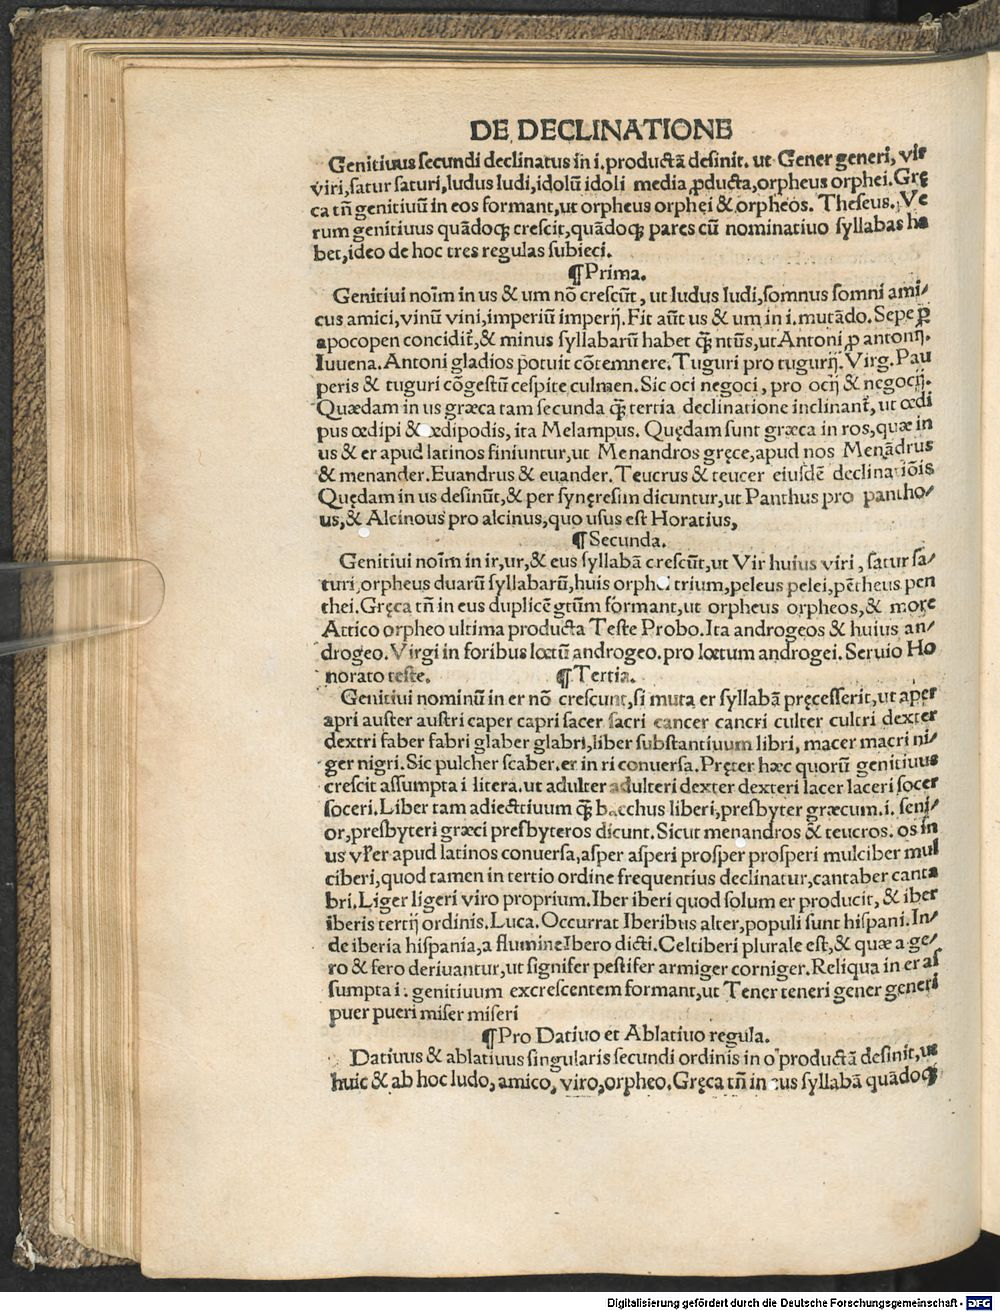 DE DECLINATIONE
Genitiuus secundi declinatus in i. productã desinit. ut Gener generi, vir
viri, satur saturi, ludus ludi, idolũ idoli media ꝓducta, orpheus orphei. Grę
ca tñ genitiuũ in eos formant, ut orpheus orphei & orpheos. Theseus. Ve
rum genitiuus quãdoqꝫ crescit, quãdoqꝫ pares cũ nominatiuo syllabas ha
bet, ideo de hoc tres regulas subieci.
¶Prima.
Genitiui noim̃ in us & um nõ crescũt, ut ludus ludi, somnus somni ami/
cus amici, vinũ vini, imperiũ imperij. Fit aũt us & um in i. mutãdo. Sepe ꝑ
apocopen concidit̃, & minus syllabarũ habet q̃ꝫ ntũs, ut Antoni ꝓ antonij.
Iuuena. Antoni gladios potuit cõtemnere. Tuguri pro tugurij. Virg. Pau
peris & tuguri cõgestũ cespite culmen. Sic oci negoci, pro ocij & negocij.
Quædam in us græca tam secunda q̃ꝫ tertia declinatione inclinant̃, ut œdi
pus œdipi & œdipodis, ita Melampus. Quędam sunt græca in ros, quæ in
us & er apud latinos finiuntur, ut Menandros gręce, apud nos Menãdrus
& menander. Euandrus & euander. Teucrus & teucer eiusdẽ declinatiõis
Quędam in us desinũt, & per synęresim dicuntur, ut Panthus pro pantho/
us, & Alcinous pro alcinus, quo usus est Horatius,
¶Secunda.
Genitiui noim̃ in ir, ur, & eus syllabã crescũt, ut Vir huius viri, satur sa/
turi, orpheus duarũ syllabarũ, huis orphei trium, peleus pelei, pẽtheus pen
thei. Gręca tñ in eus duplicẽ gtũm formant, ut orpheus orpheos, & more
Attico orpheo ultima producta Teste Probo. Ita androgeos & huius an/
drogeo. Virgi in foribus lœtũ androgeo. pro lœtum androgei. Seruio Ho
norato teste. ¶Tertia.
Genitiui nominũ in er nõ crescunt, si muta er syllabã pręcesserit, ut aper
apri auster austri caper capri sacer sacri cancer cancri culter cultri dexter
dextri faber fabri glaber glabri, liber substantiuum libri, macer macri ni/
ger nigri. Sic pulcher scaber. er in ri conuersa. Pręter hæc quorũ genitiuus
crescit assumpta i litera. ut adulter adulteri dexter dexteri lacer laceri socer
soceri. Liber tam adiectiuum q̃ꝫ bacchus liberi, presbyter græcum. i. seni/
or, presbyteri græci presbyteros dicunt. Sicut menandros & teucros. os in
us vl'er apud latinos conuersa, asper asperi prosper prosperi mulciber mul
ciberi, quod tamen in tertio ordine frequentius declinatur, cantaber canta
bri. Liger ligeri viro proprium. Iber iberi quod solum er producit, & iber
iberis tertij ordinis. Luca. Occurrat Iberibus alter, populi sunt hispani. In/
de iberia hispania, a flumine Ibero dicti. Celtiberi plurale est, & quæ a ge/
ro & fero deriuantur, ut signifer pestifer armiger corniger. Reliqua in er as
sumpta i. genitiuum excrescentem formant, ut Tener teneri gener generi
puer pueri miser miseri
¶Pro Datiuo et Ablatiuo regula.
Datiuus & ablatiuus singularis secundi ordinis in o productã desinit, ut
huic & ab hoc ludo, amico, viro, orpheo. Gręca tñ in eus syllabã quãdoqꝫ
Digitalisierung gefördert durch die Deutsche Forschungsgemeinschaft - DFG